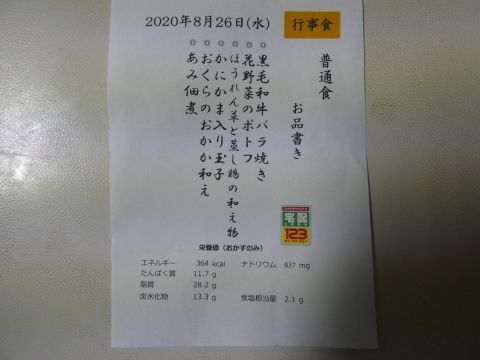 2020年8月26日(水)
行事食
普通食
お品書き
◎黒毛和牛バラ焼き
◎花野菜のポトフ
◎ほうれん草と蒸し鶏の和え物
◎かにかま入り玉子
◎おくらのおかか和え
◎あみ佃煮
宅配
123
栄養価（おかずのみ）
エネルギー 364 kcal ナトリウム 837 mg
たんぱく質 11.7 g
脂質 28.2 g
炭水化物 13.3 g 食塩相当量 2.1 g